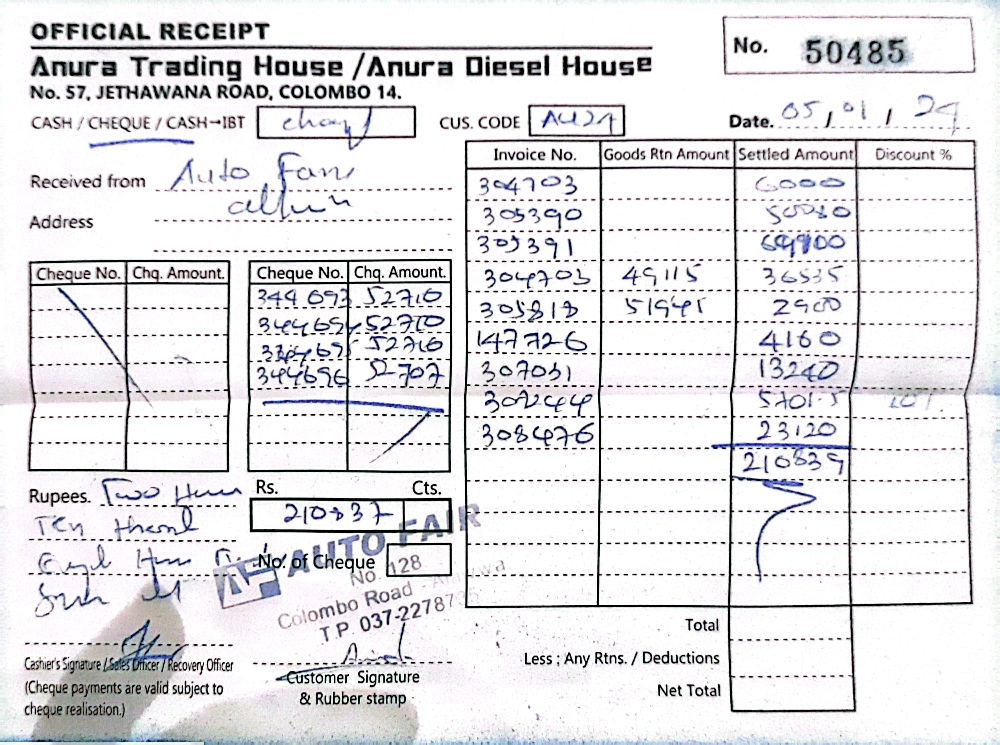 OFFICIAL RECEIPT
No. 50485
Anura Trading House / Anura Diesel House
No. 57, JETHAWANA ROAD, COLOMBO 14.
CASH / CHEQUE / CASH→IBT
CUS. CODE
Date. 05 / 01 / 24
Received from Auto
Address
Invoice No. Goods Rtn Amount Settled Amount Discount %
304703 6000
305390
305391
304703 49115 36535
305818 51941 2900
147726 4160
307031 13240
5701.5
308476 23120
210839
Cheque No. Chq. Amount. Cheque No. Chq. Amount.
344693 52710
344694 52710
52710
344696 52707
Rupees. Two
Ten
Rs. Cts.
210837
No. of Cheque
AUTO FAIR
No. 128
Colombo Road
T.P. 037-2278
Cashier's Signature / Sales Officer / Recovery Officer
(Cheque payments are valid subject to
cheque realisation.)
Customer Signature
& Rubber stamp
Total
Less ; Any Rtns. / Deductions
Net Total